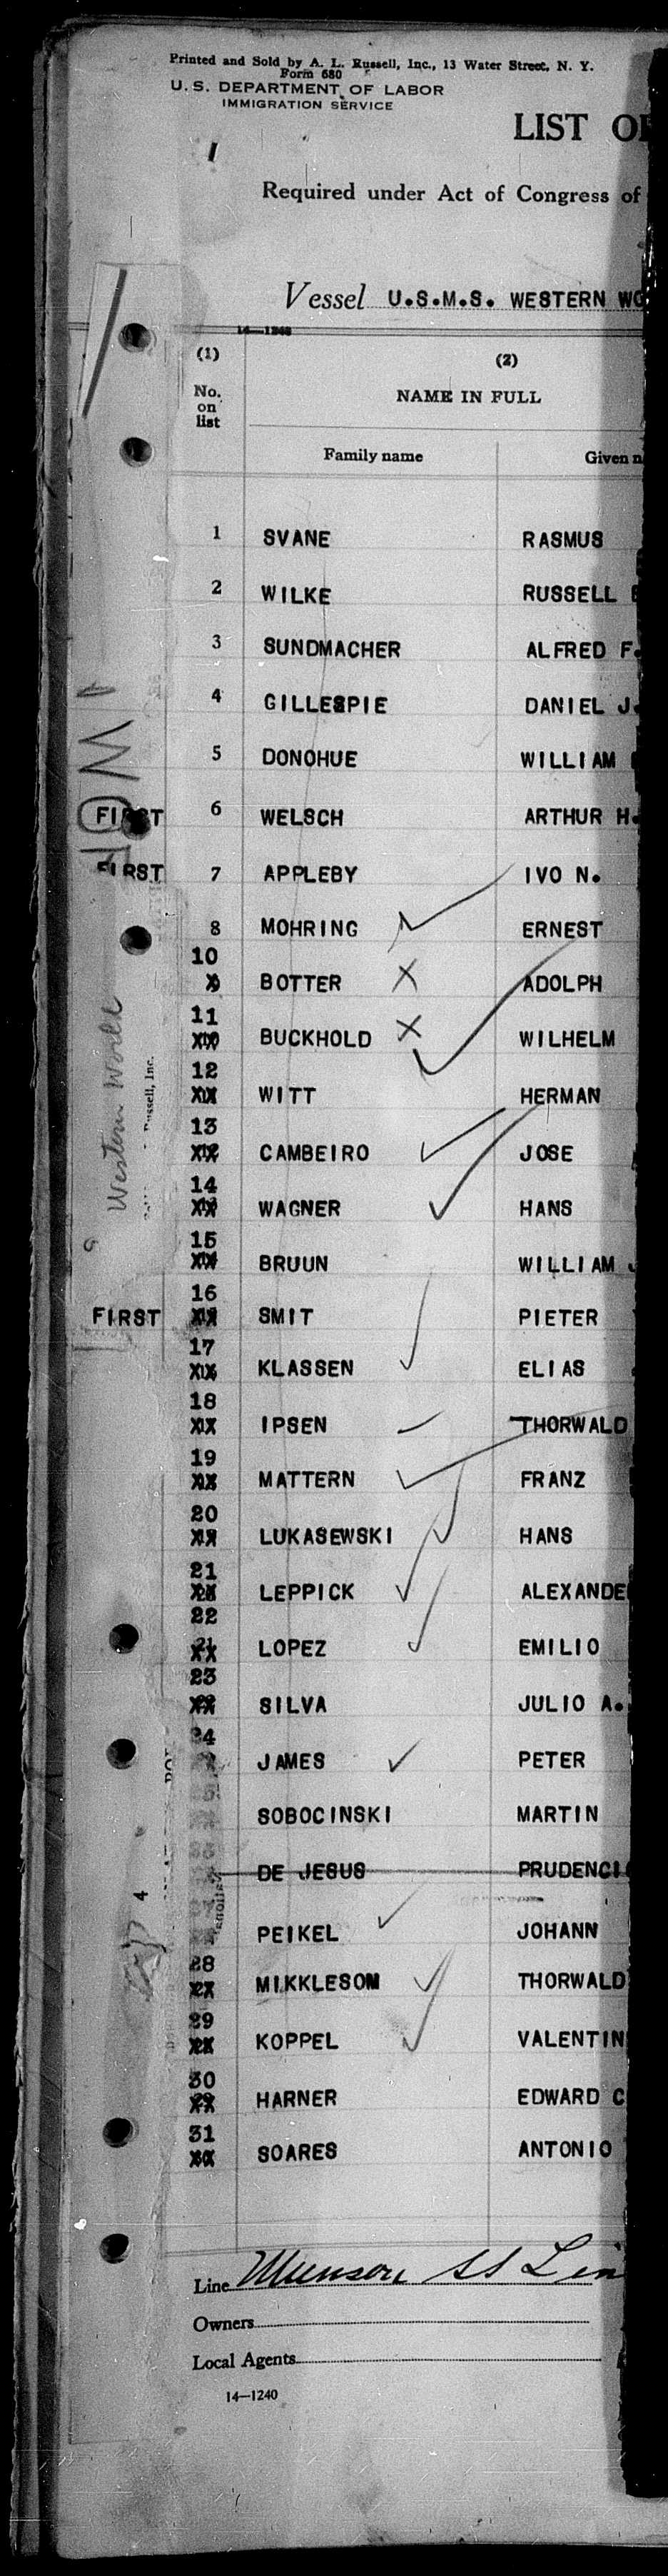 Printed and Sold by A. L. Russell, Inc., 13 Water Street, N. Y.
Form 680
U. S. DEPARTMENT OF LABOR
IMMIGRATION SERVICE
LIST OF
Required under Act of Congress of
Vessel U.S.M.S. WESTERN WO
14—1240
(1) (2)
No. on list NAME IN FULL
Family name Given n
1 SVANE RASMUS
2 WILKE RUSSELL
3 SUNDMACHER ALFRED F.
4 GILLESPIE DANIEL J.
5 DONOHUE WILLIAM
FIRST 6 WELSCH ARTHUR H.
FIRST 7 APPLEBY IVO N.
8 MOHRING ERNEST
10 BOTTER X ADOLPH
11 BUCKHOLD X WILHELM
12 WITT HERMAN
13 CAMBEIRO JOSE
14 WAGNER HANS
15 BRUUN WILLIAM
FIRST 16 SMIT PIETER
17 KLASSEN ELIAS
18 IPSEN THORWALD
19 MATTERN FRANZ
20 LUKASEWSKI HANS
21 LEPPICK ALEXANDE
22 LOPEZ EMILIO
23 SILVA JULIO A.
24 JAMES PETER
SOBOCINSKI MARTIN
DE JESUS PRUDENCI
PEIKEL JOHANN
28 MIKKLESOM THORWALD
29 KOPPEL VALENTIN
30 HARNER EDWARD C
31 SOARES ANTONIO
Western World
Russell, Inc.
4
Line Munson SS Lin
Owners
Local Agents
14—1240